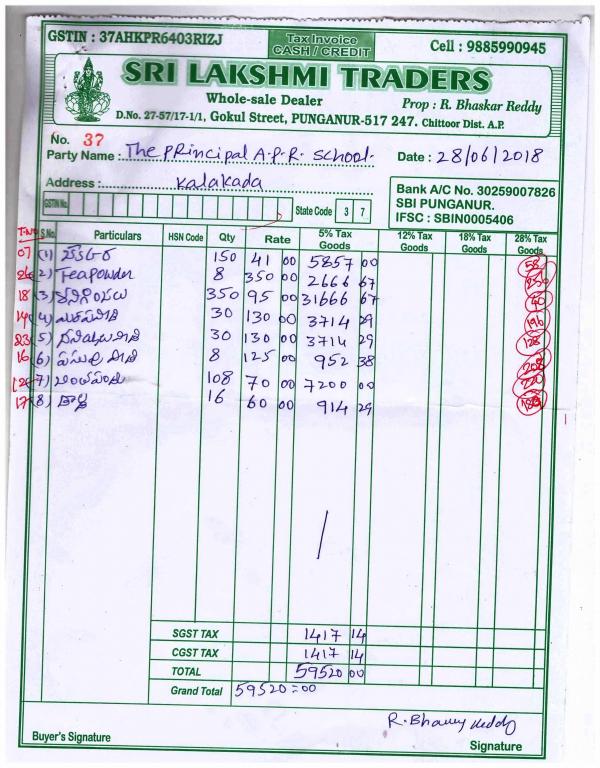 GSTIN : 37AHKPR6403RIZJ
Tax Invoice
CASH / CREDIT
Cell : 9885990945
SRI LAKSHMI TRADERS
Whole-sale Dealer
Prop : R. Bhaskar Reddy
D.No. 27-57/17-1/1, Gokul Street, PUNGANUR-517 247. Chittoor Dist. A.P.
No. 37
Party Name : The PRincipal A.P.R. School.
Date : 28/06/2018
Address : Kalakada
GSTIN No.
State Code 3 7
Bank A/C No. 30259007826
SBI PUNGANUR.
IFSC : SBIN0005406
S.No. Particulars HSN Code Qty Rate 5% Tax Goods 12% Tax Goods 18% Tax Goods 28% Tax Goods
07 (1) 150 41 00 5857 00
(2) Teapowder 8 350 00 2666 67
18 (3) 350 95 00 31666 67
14 (4) 30 130 00 3714 29
23 (5) 30 130 00 3714 29
16 (6) 8 125 00 952 38
(7) 108 70 00 7200 00
17 (8) 16 60 00 914 29
SGST TAX 1417 14
CGST TAX 1417 14
TOTAL 59520 00
Grand Total 59520=00
Buyer's Signature
Signature